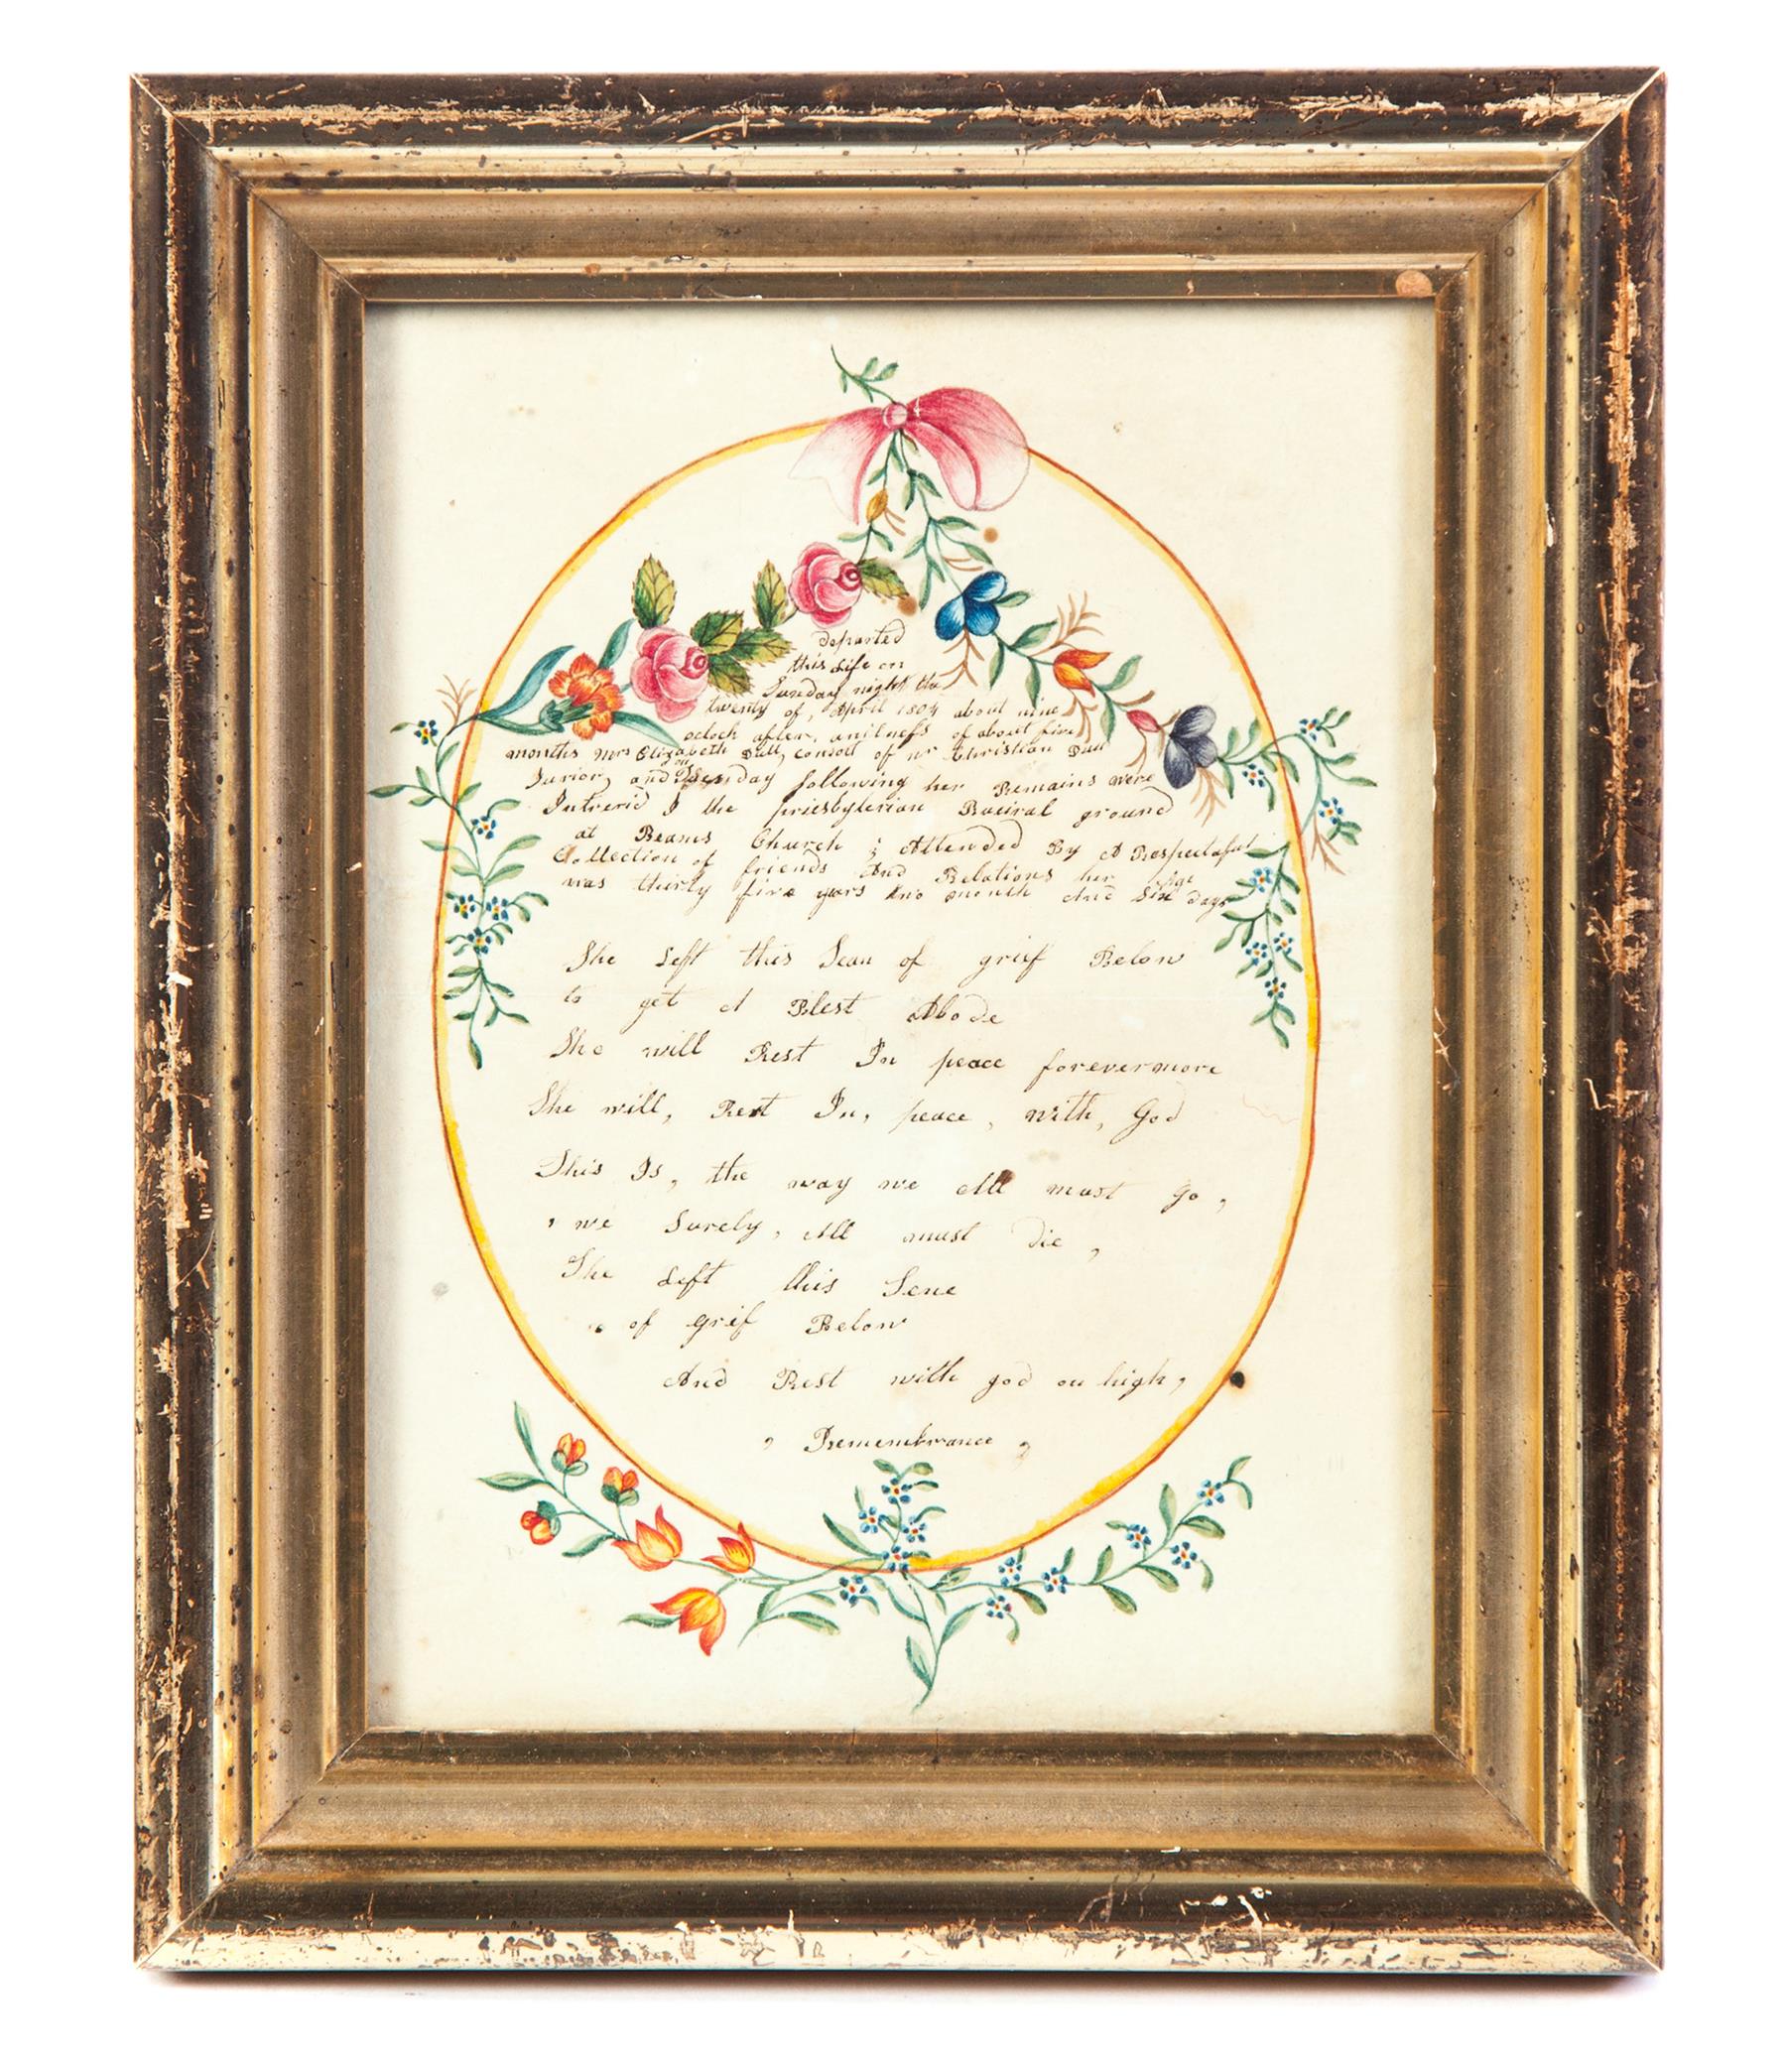 departed
this Life on
Sunday night the
twenty of, April 1804 about nine
oclock after, an ilness of about five
months Mrs Elizabeth Dull, Consort of mr Christian Dull
Junior, and on Tuesday following her Remains were
Intrerid I the presbyterian Buriral ground
at Beams Church ; Attended By A Respectafull
Collection of friends And Relations her Age
was thirty five years two month And Six days
She Left this Sean of grief Below
to get A Blest Abode
She will Rest In peace forevermore
She will, Rest In, peace, with, God
This Is, the way we All must go,
, we Surely, All must die,
She Left this Sene
of grif Below
And Rest with god on high,
, Remembrance ,